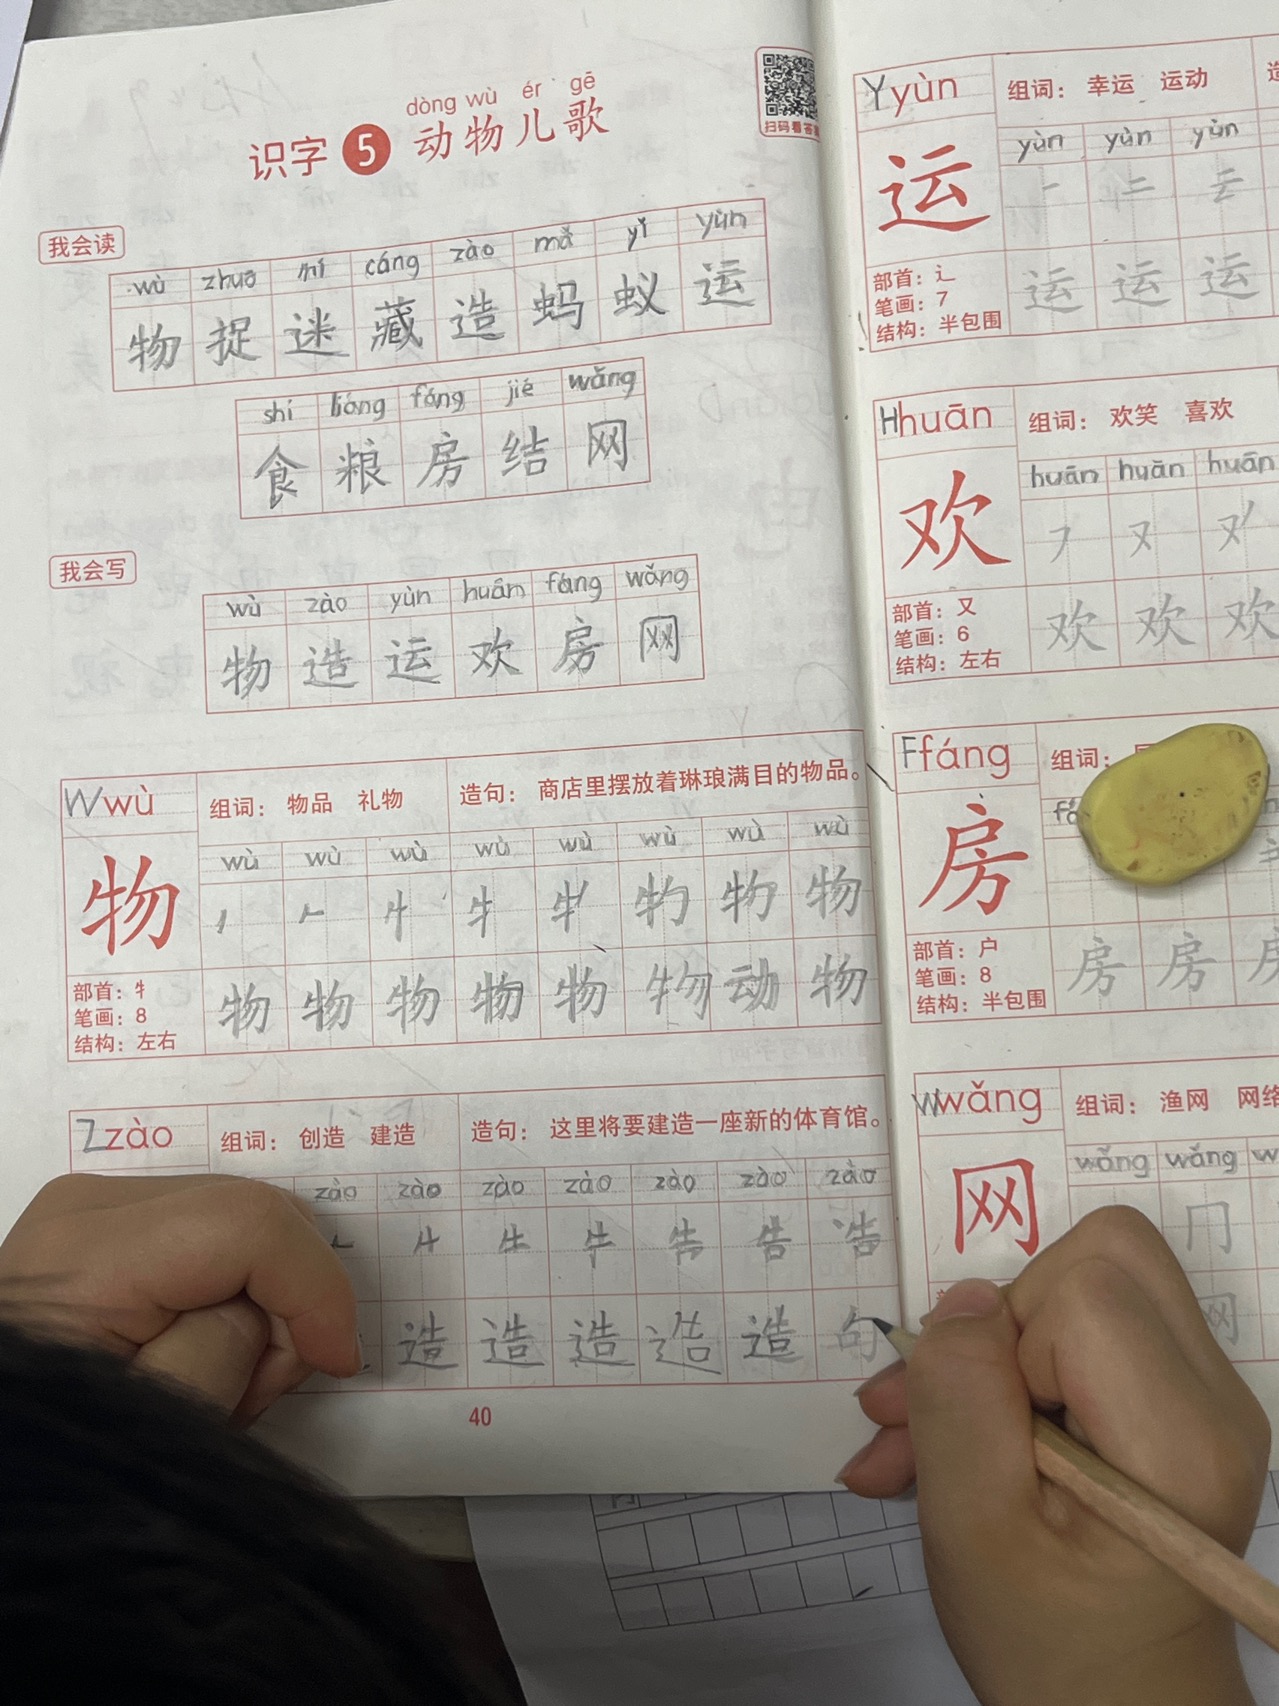 dòng wù ér gē
识字 5 动物儿歌
扫码看答
我会读
wù zhuō mí cáng zào mǎ yǐ yùn
物 捉 迷 藏 造 蚂 蚁 运
shí liáng fáng jié wǎng
食 粮 房 结 网
我会写
wù zào yùn huān fáng wǎng
物 造 运 欢 房 网
W wù 组词： 物品 礼物 造句： 商店里摆放着琳琅满目的物品。
wù wù wù wù wù wù wù wù
物
牜 物 物 物
部首：牜
笔画：8
结构：左右
物 物 物 物 物 物 动 物
Z zào 组词： 创造 建造 造句： 这里将要建造一座新的体育馆。
zào zào zào zào zào zào zào
告 告
造 造 造 造 造 句
40
Y yùn 组词： 幸运 运动 造
yùn yùn yùn
运
一 二 云
部首：辶
笔画：7
结构：半包围
运 运 运
H huān 组词： 欢笑 喜欢
huān huān huān
欢
部首：又
笔画：6
结构：左右
欢 欢 欢
F fáng 组词：
房
部首：户
笔画：8
结构：半包围
房 房
W wǎng 组词： 渔网 网络
wǎng wǎng w
网
冂
网